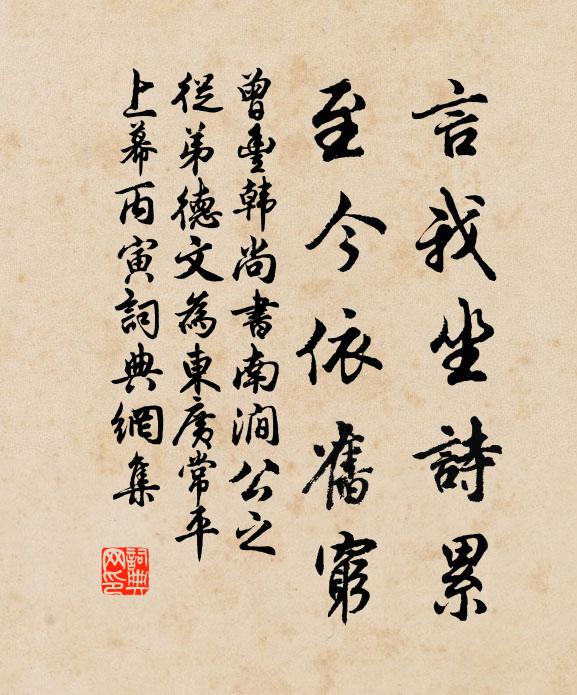 言我坐詩累
至今依舊窮
曾豊韓尚書南澗公之
從弟德文為東廣常平
上幕丙寅詞典網集
詞典网印